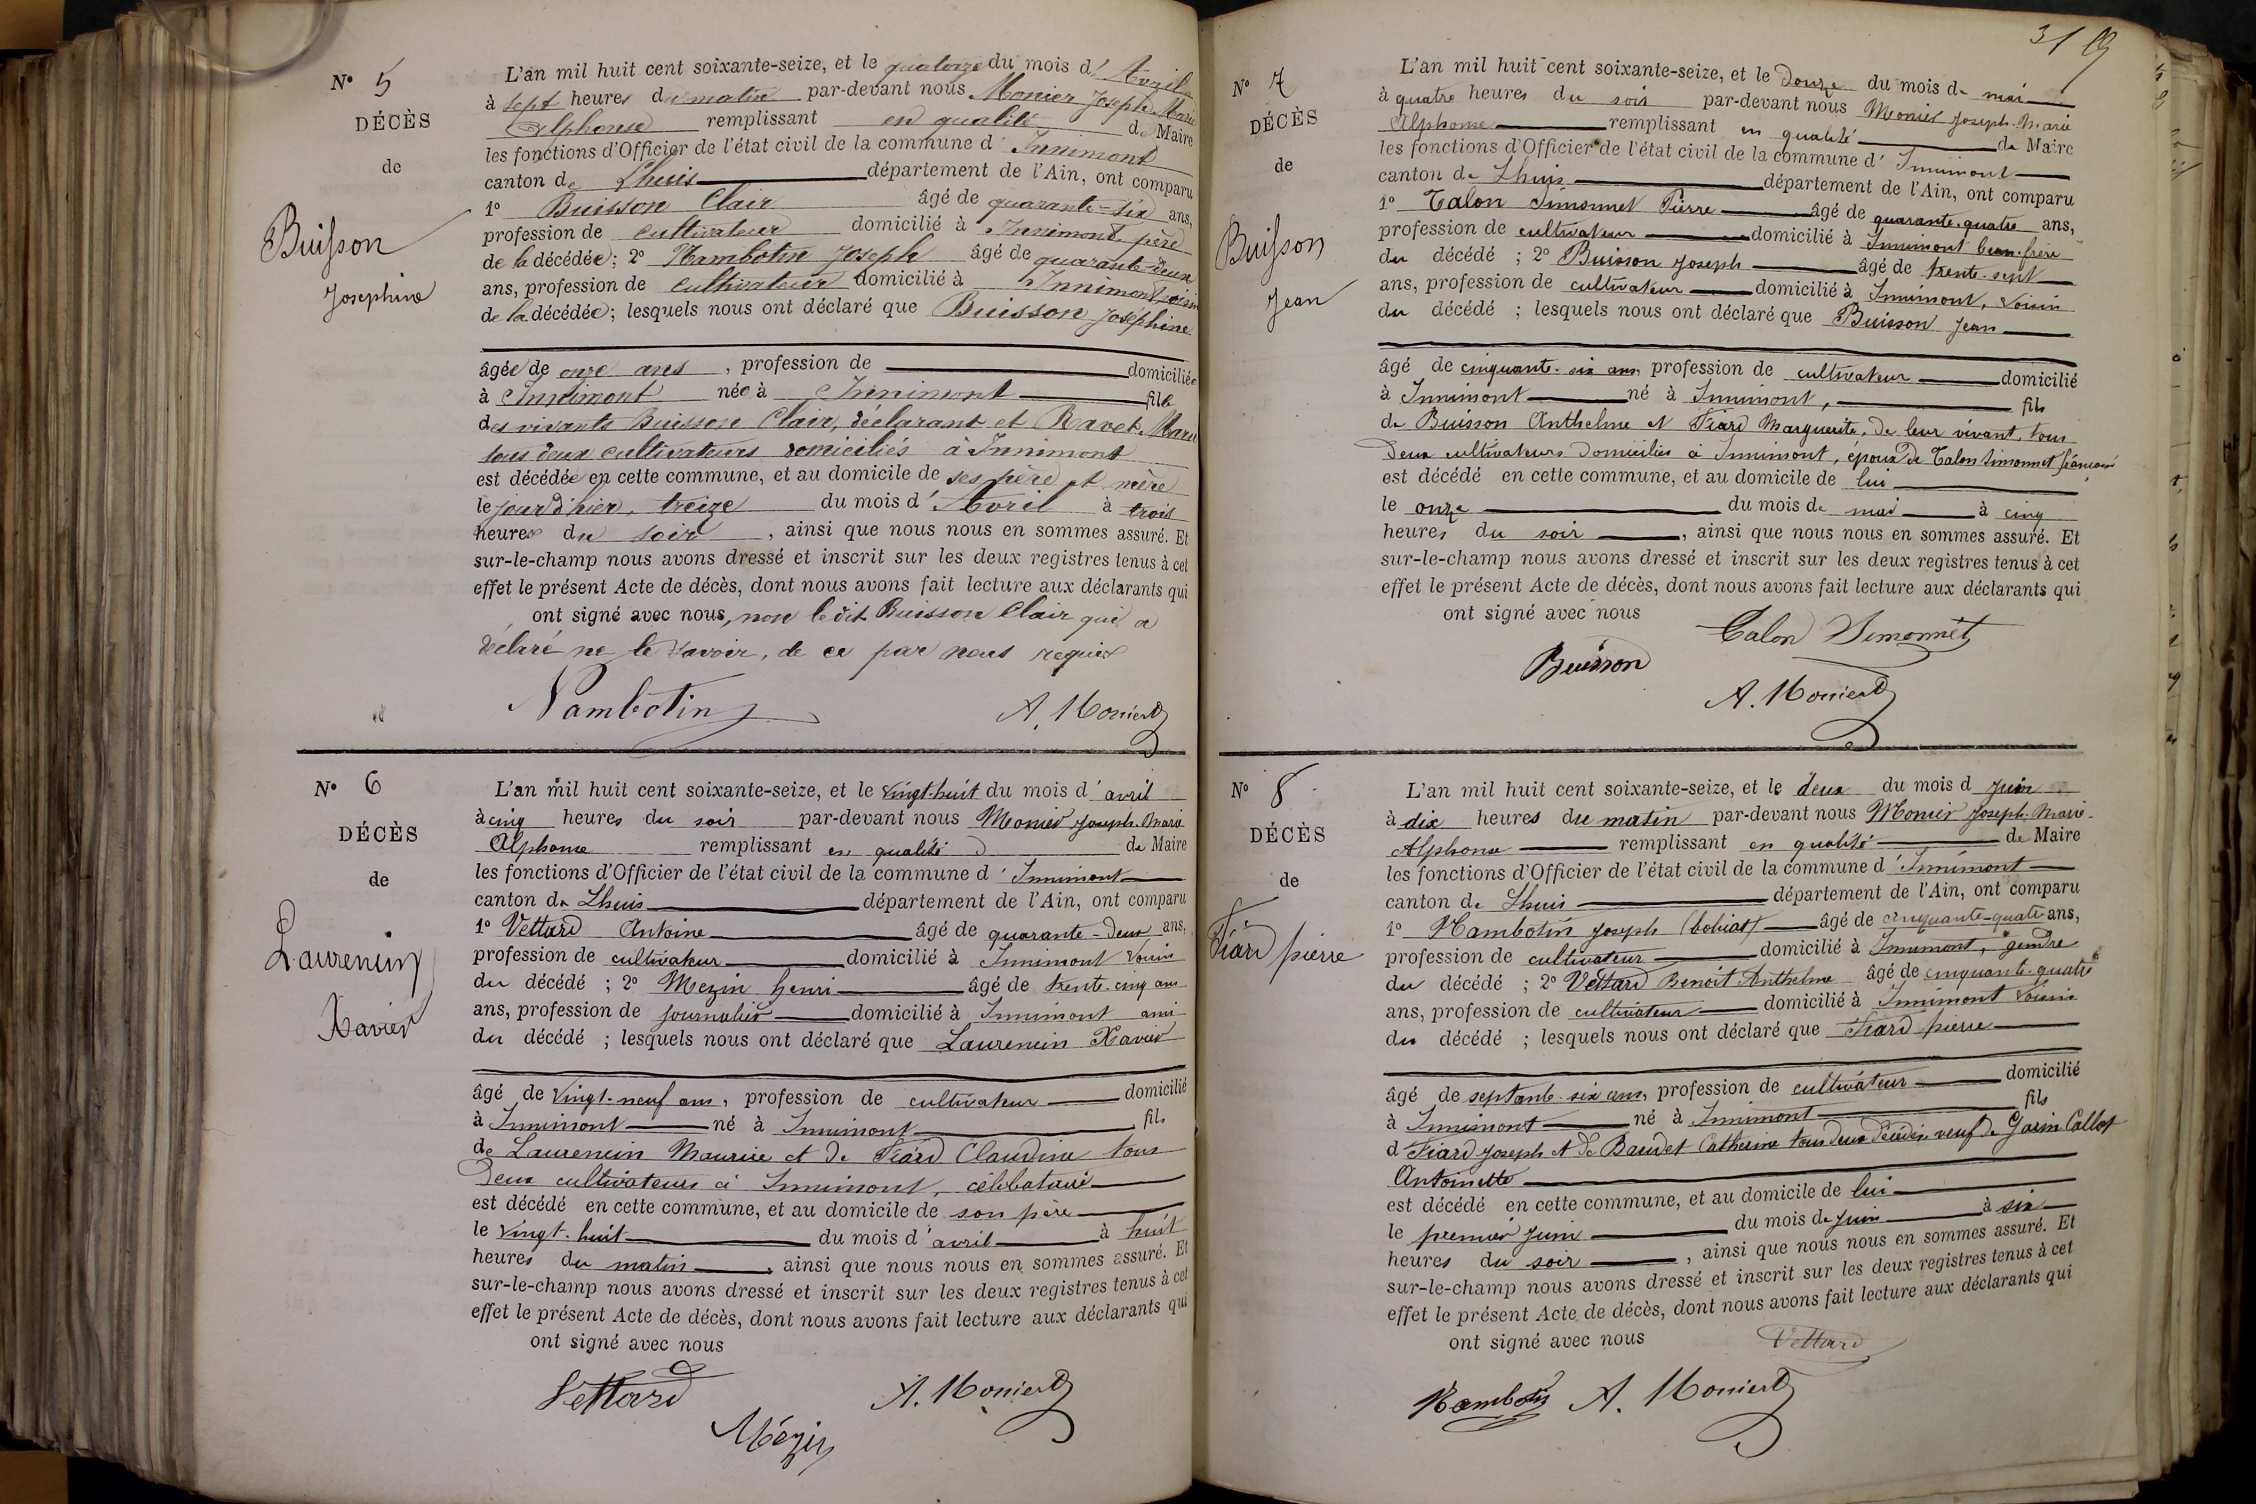 N° 5
DÉCÈS
de
Buisson
Josephine
L'an mil huit cent soixante-seize, et le quatorze du mois d'Avril
à sept heures du matin par-devant nous Monier Joseph Marie
Alphonse remplissant en qualité de Maire
les fonctions d'Officier de l'état civil de la commune d'Innimont
canton de Lhuis département de l'Ain, ont comparu
1° Buisson Clair âgé de quarante-six ans,
profession de cultivateur domicilié à Innimont, père
de la décédée; 2° Nambotin Joseph âgé de quarante-deux
ans, profession de cultivateur domicilié à Innimont, voisin
de la décédée; lesquels nous ont déclaré que Buisson Joséphine
âgée de onze ans, profession de domiciliée
à Innimont née à Innimont fille
des vivants Buisson Clair, déclarant et Ravet Marie
tous deux cultivateurs domiciliés à Innimont
est décédée en cette commune, et au domicile de ses père et mère
le jour d'hier, treize du mois d'Avril à trois
heures du soir, ainsi que nous nous en sommes assuré. Et
sur-le-champ nous avons dressé et inscrit sur les deux registres tenus à cet
effet le présent Acte de décès, dont nous avons fait lecture aux déclarants qui
ont signé avec nous, non ledit Buisson Clair qui a
déclaré ne le savoir, de ce par nous requis
Nambotin A. Monier
N° 6
DÉCÈS
de
Laurencin
Xavier
L'an mil huit cent soixante-seize, et le vingt-huit du mois d'avril
à cinq heures du soir par-devant nous Monier Joseph-Marie
Alphonse remplissant en qualité de Maire
les fonctions d'Officier de l'état civil de la commune d'Innimont
canton de Lhuis département de l'Ain, ont comparu
1° Vettard Antoine âgé de quarante-deux ans,
profession de cultivateur domicilié à Innimont voisin
du décédé; 2° Mezin henri âgé de trente-cinq ans
ans, profession de journalier domicilié à Innimont ami
du décédé; lesquels nous ont déclaré que Laurencin Xavier
âgé de vingt-neuf ans, profession de cultivateur domicilié
à Innimont né à Innimont, fils
de Laurencin Maurice et de Fiard Claudine tous
deux cultivateurs à Innimont, célibataire
est décédé en cette commune, et au domicile de son père
le vingt-huit du mois d'avril à huit
heures du matin, ainsi que nous nous en sommes assuré. Et
sur-le-champ nous avons dressé et inscrit sur les deux registres tenus à cet
effet le présent Acte de décès, dont nous avons fait lecture aux déclarants qui
ont signé avec nous
Vettard A. Monier
Mézin
31
N° 7
DÉCÈS
de
Buisson
Jean
L'an mil huit cent soixante-seize, et le douze du mois de mai
à quatre heures du soir par-devant nous Monier Joseph-Marie
Alphonse remplissant en qualité de Maire
les fonctions d'Officier de l'état civil de la commune d'Innimont
canton de Lhuis département de l'Ain, ont comparu
1° Talon Simonnet Pierre âgé de quarante-quatre ans,
profession de cultivateur domicilié à Innimont beau-frère
du décédé; 2° Buisson Joseph âgé de trente-sept
ans, profession de cultivateur domicilié à Innimont, voisin
du décédé; lesquels nous ont déclaré que Buisson Jean
âgé de cinquante-six ans, profession de cultivateur domicilié
à Innimont né à Innimont, fils
de Buisson Anthelme et Fiard Marguerite, de leur vivant, tous
deux cultivateurs domiciliés à Innimont, époux de Talon Simonnet françoise
est décédé en cette commune, et au domicile de lui
le onze du mois de mai à cinq
heures du soir, ainsi que nous nous en sommes assuré. Et
sur-le-champ nous avons dressé et inscrit sur les deux registres tenus à cet
effet le présent Acte de décès, dont nous avons fait lecture aux déclarants qui
ont signé avec nous
Talon Simonnet
Buisson
A. Monier
N° 8
DÉCÈS
de
Fiard pierre
L'an mil huit cent soixante-seize, et le deux du mois d Juin
à dix heures du matin par-devant nous Monier Joseph-Marie-
Alphonse remplissant en qualité de Maire
les fonctions d'Officier de l'état civil de la commune d'Innimont
canton de Lhuis département de l'Ain, ont comparu
1° Nambotin Joseph (bobiat) âgé de cinquante-quatre ans,
profession de cultivateur domicilié à Innimont, gendre
du décédé; 2° Vettard Benoit Anthelme âgé de cinquante-quatre
ans, profession de cultivateur domicilié à Innimont voisin
du décédé; lesquels nous ont déclaré que Fiard pierre
âgé de septante-six ans, profession de cultivateur domicilié
à Innimont né à Innimont fils
d Fiard Joseph et de Baudet Catherine tous deux décédés, veuf de Garin Callot
Antoinette
est décédé en cette commune, et au domicile de lui
le premier Juin du mois de Juin à six
heures du soir, ainsi que nous nous en sommes assuré. Et
sur-le-champ nous avons dressé et inscrit sur les deux registres tenus à cet
effet le présent Acte de décès, dont nous avons fait lecture aux déclarants qui
ont signé avec nous Vettard
Nambotin A. Monier